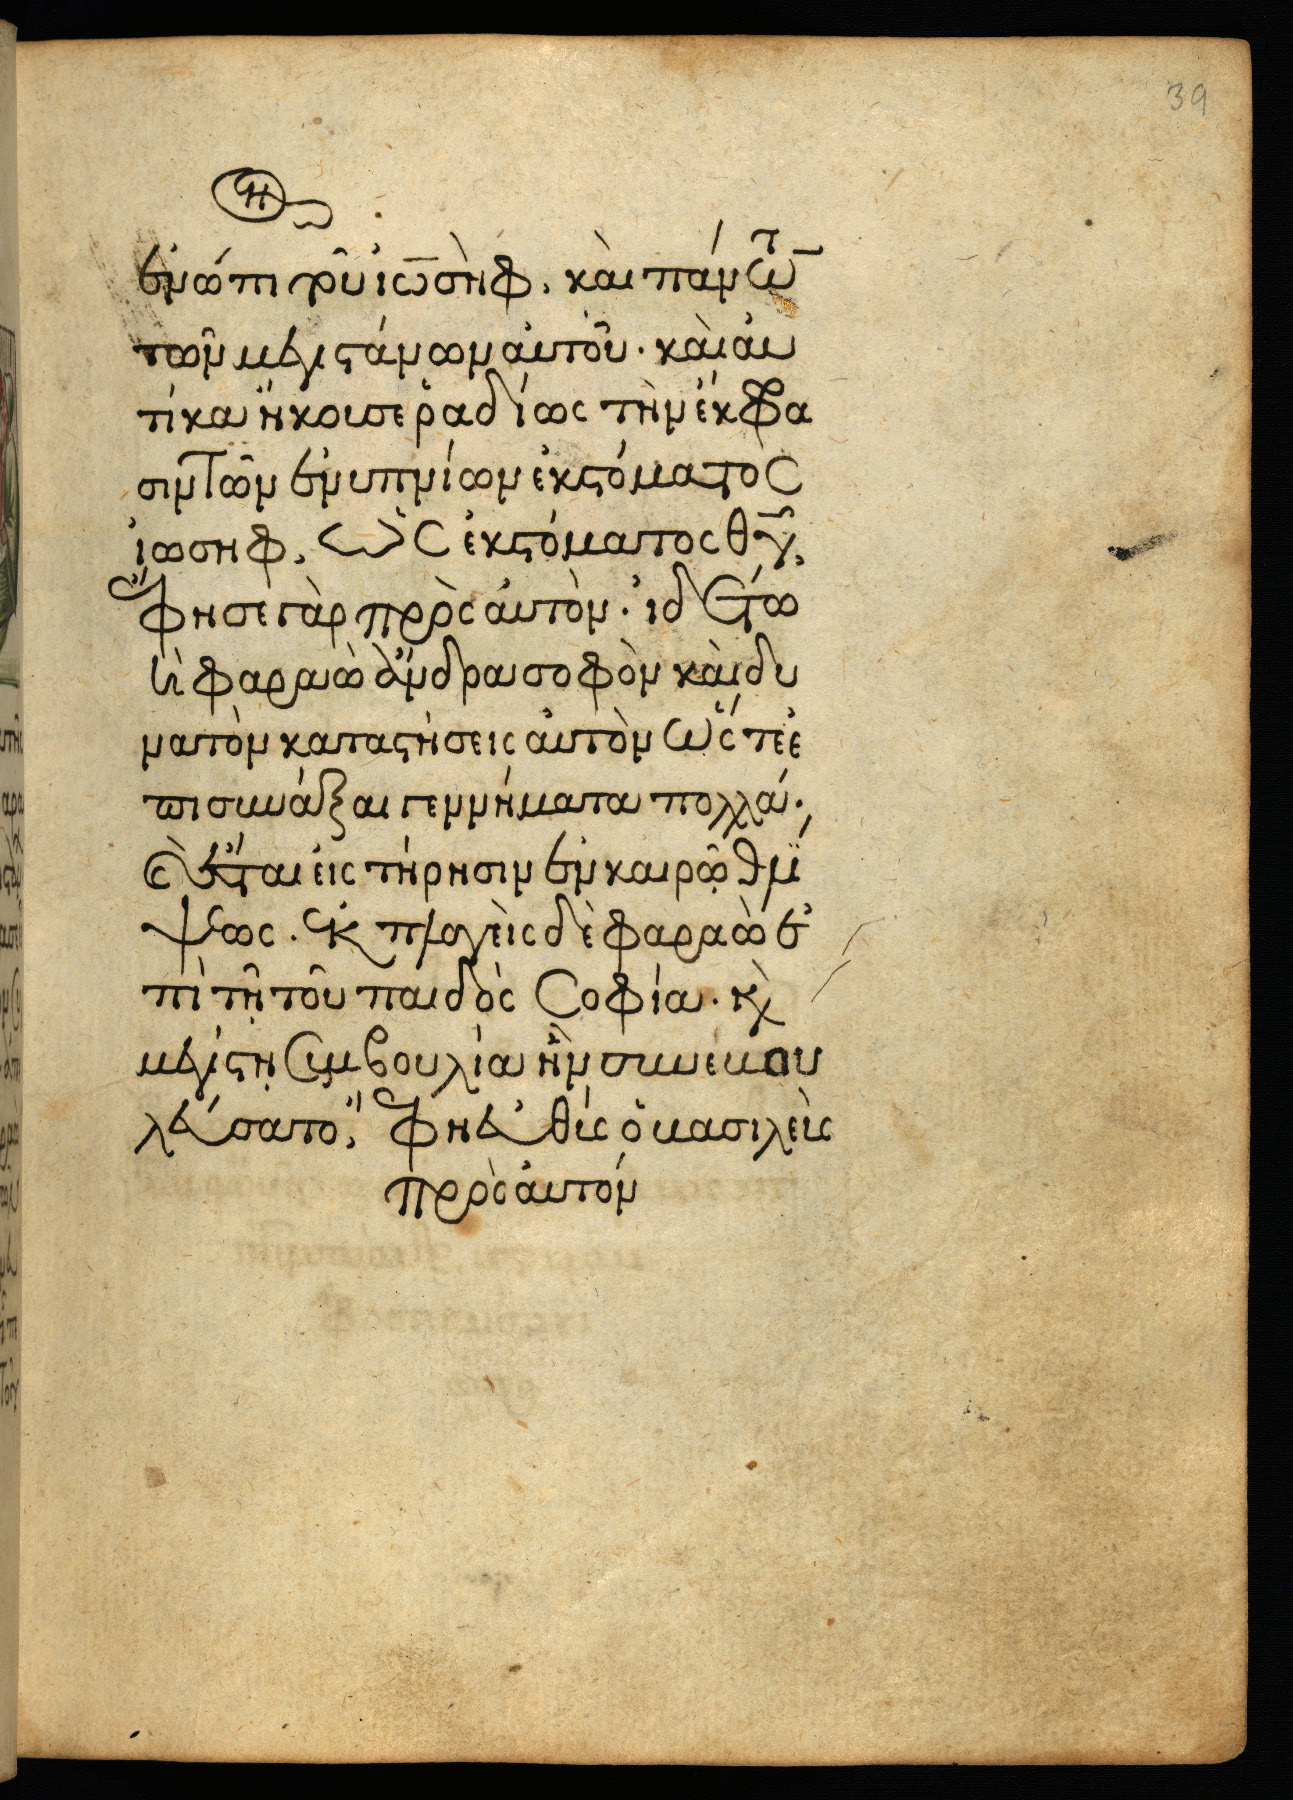 39
ἐνώπι τοῦ ἰωσὴφ, καὶ πάντων
τῶν μεγιστάνων ἀυτοῦ· καὶ ἀυ
τίκα ἤκουσε ῥαδίως τὴν ἔκφα
σιν τῶν ἐνυπνίων ἐκ στόματος
ἰωσηφ, ὡς ἐκ στόματος θῦ,
ἔφησε γὰρ πρὸς ἀυτὸν· ἰδέτω
φαραὼ ἄνδρα σοφὸν καὶ δυ
νατὸν καταστήσεις ἀυτὸν ὥστε ἐ
πισυνάξαι γεννήματα πολλά·
ἔσται εἰς τήρησιν ἐν καιρῷ θλί
ψεως. ἐκπλαγεὶς δὲ φαραὼ ἐ
πὶ τῇ τοῦ παιδὸς σοφία· κὲ
μεγίστῃ συμβουλία ἣν συνεβου
λεύσατο, ἔφη εὐθὺς ὁ βασιλεὺς
πρὸς ἀυτόν